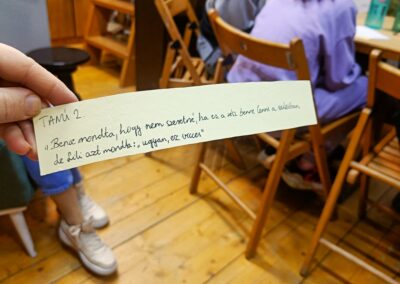 TANÚ 2
„Bence mondta, hogy nem szeretné, ha ez a rész benne lenne a videóban,
de Lili azt mondta: „ugyan, ez vicces”